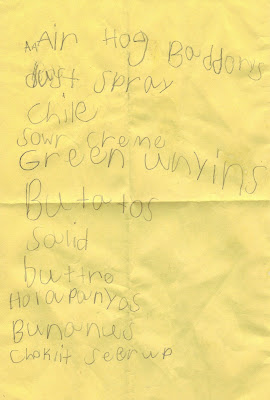 Air Hog Baddorys
dust spray
chile
sowr creme
Green unyins
Butatos
salid
buttro
Holapanyos
Bunanus
Chokiit seerup